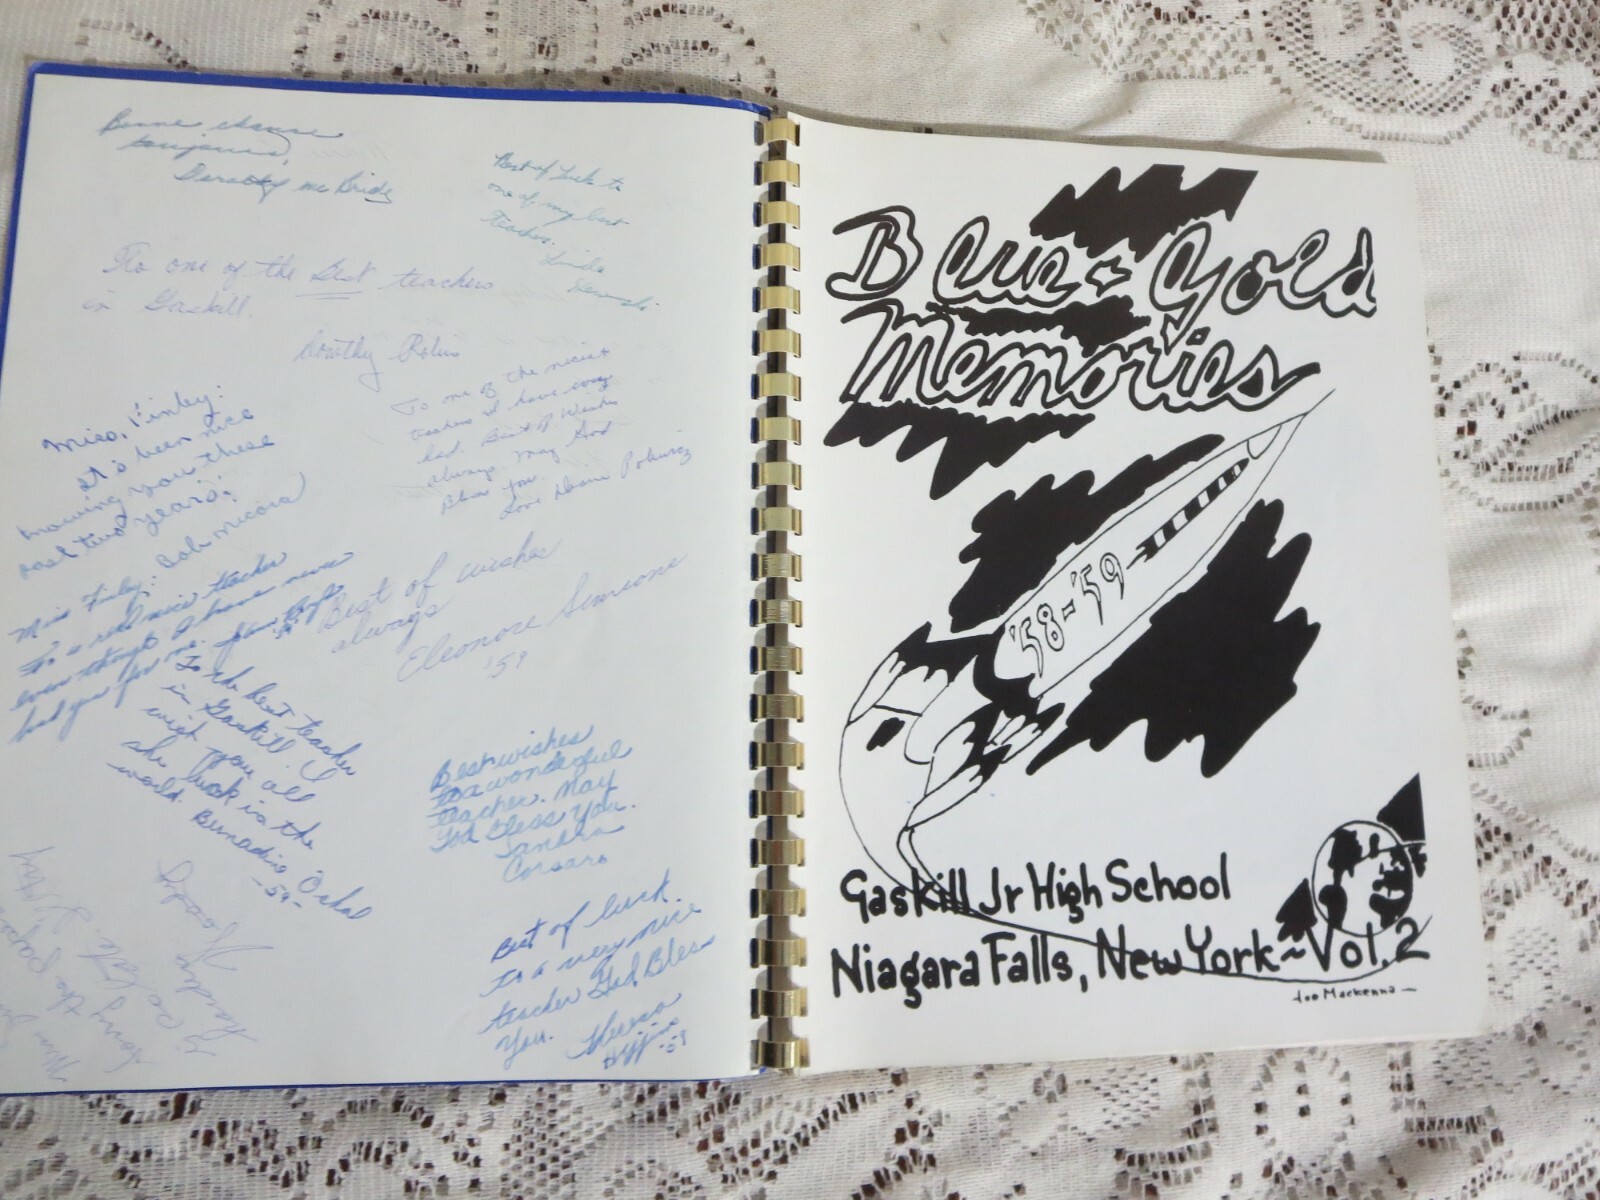 Bonne chance
toujours,
Dorothy McBride
Best of luck to
one of my best
teacher.
Linda
To one of the Best teachers
in Gaskill.
Dorothy
To one of the nicest
teachers I have ever
had. Best of Wishes
always. May God
Bless You
Love Diane
Miss, Finley:
It's been nice
knowing you these
past two years:
Bob
Best of wishes
always
Eleonore Simeone
'59
Miss Finley:
To a real nice teacher
even though I have never
had you for me.
To the best teacher
in Gaskill. I
wish you all
the luck in the
world.
-59-
Best wishes
to a wonderful
teacher. May
God Bless You.
Sandra
Corsaro
Best of luck.
to a very nice
teacher God Bless
You.
'59
Blue & Gold
Memories
'58-'59
Gaskill Jr High School
Niagara Falls, New York~Vol. 2
Joe Mackenna —